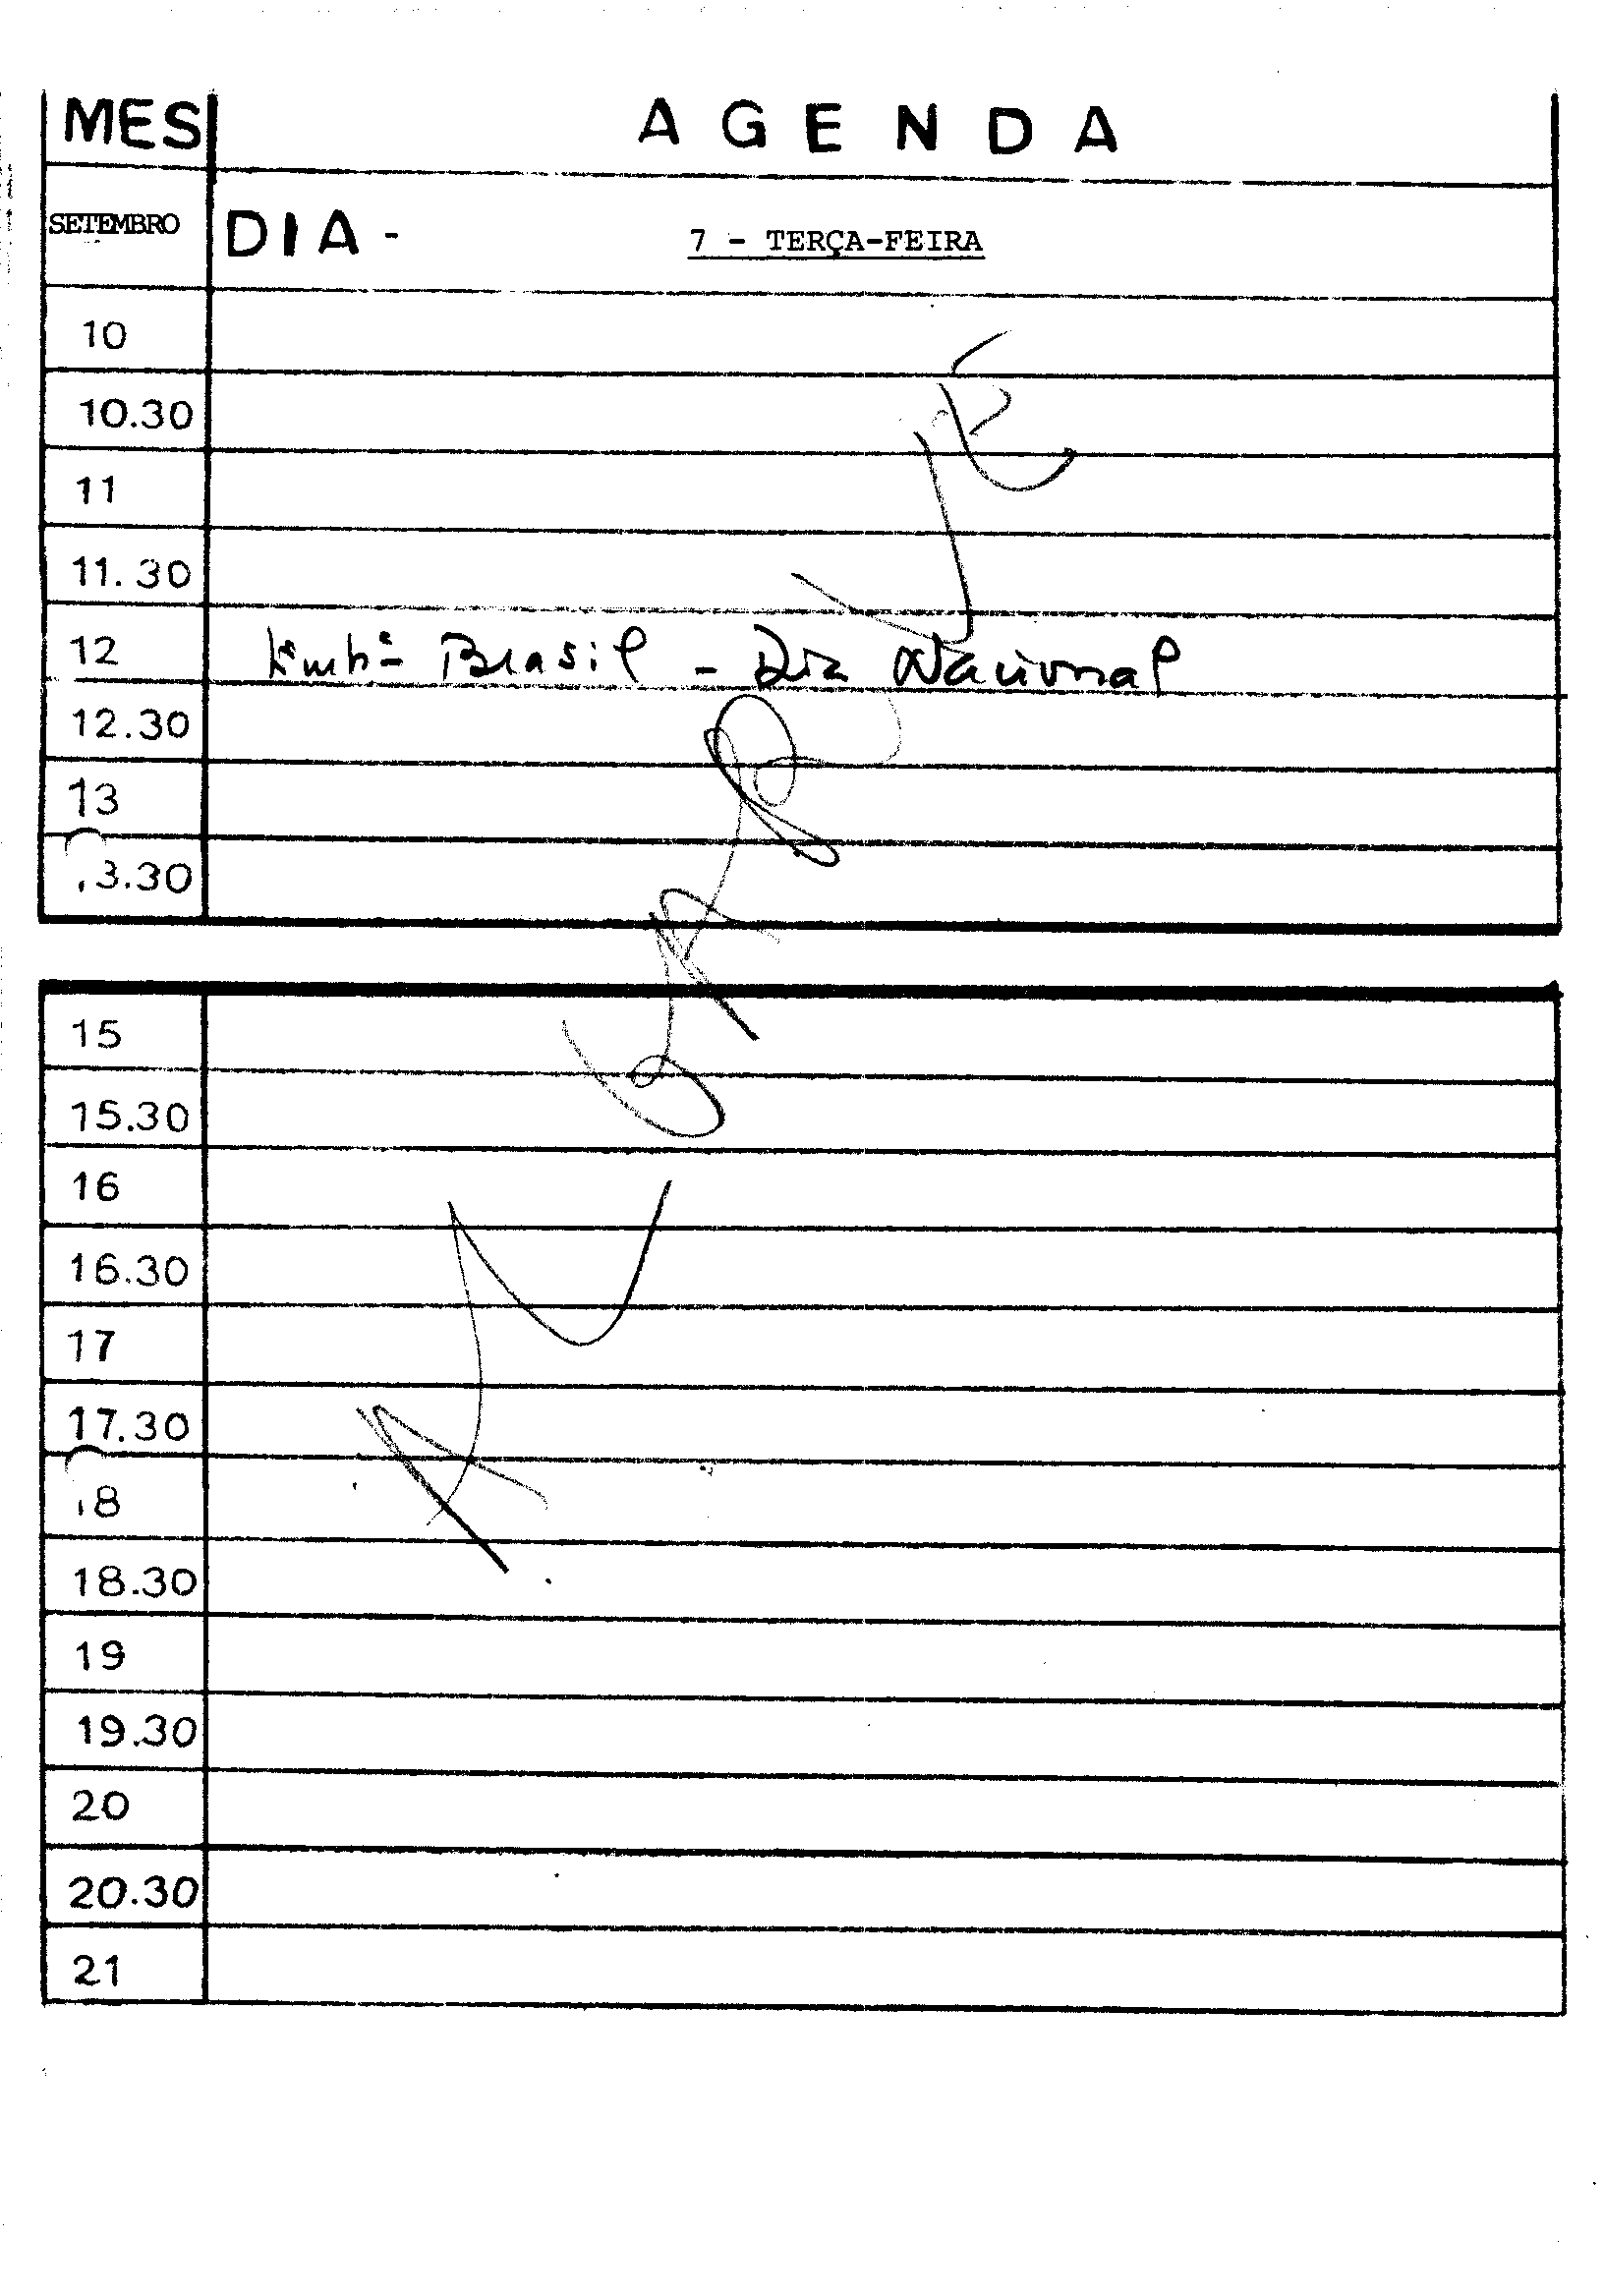 MES AGENDA
SETEMBRO DIA - 7 - TERÇA-FEIRA
10
10.30
11
11.30
12 Embª Brasil - Dia Nacional
12.30
13
13.30
15
15.30
16
16.30
17
17.30
18
18.30
19
19.30
20
20.30
21